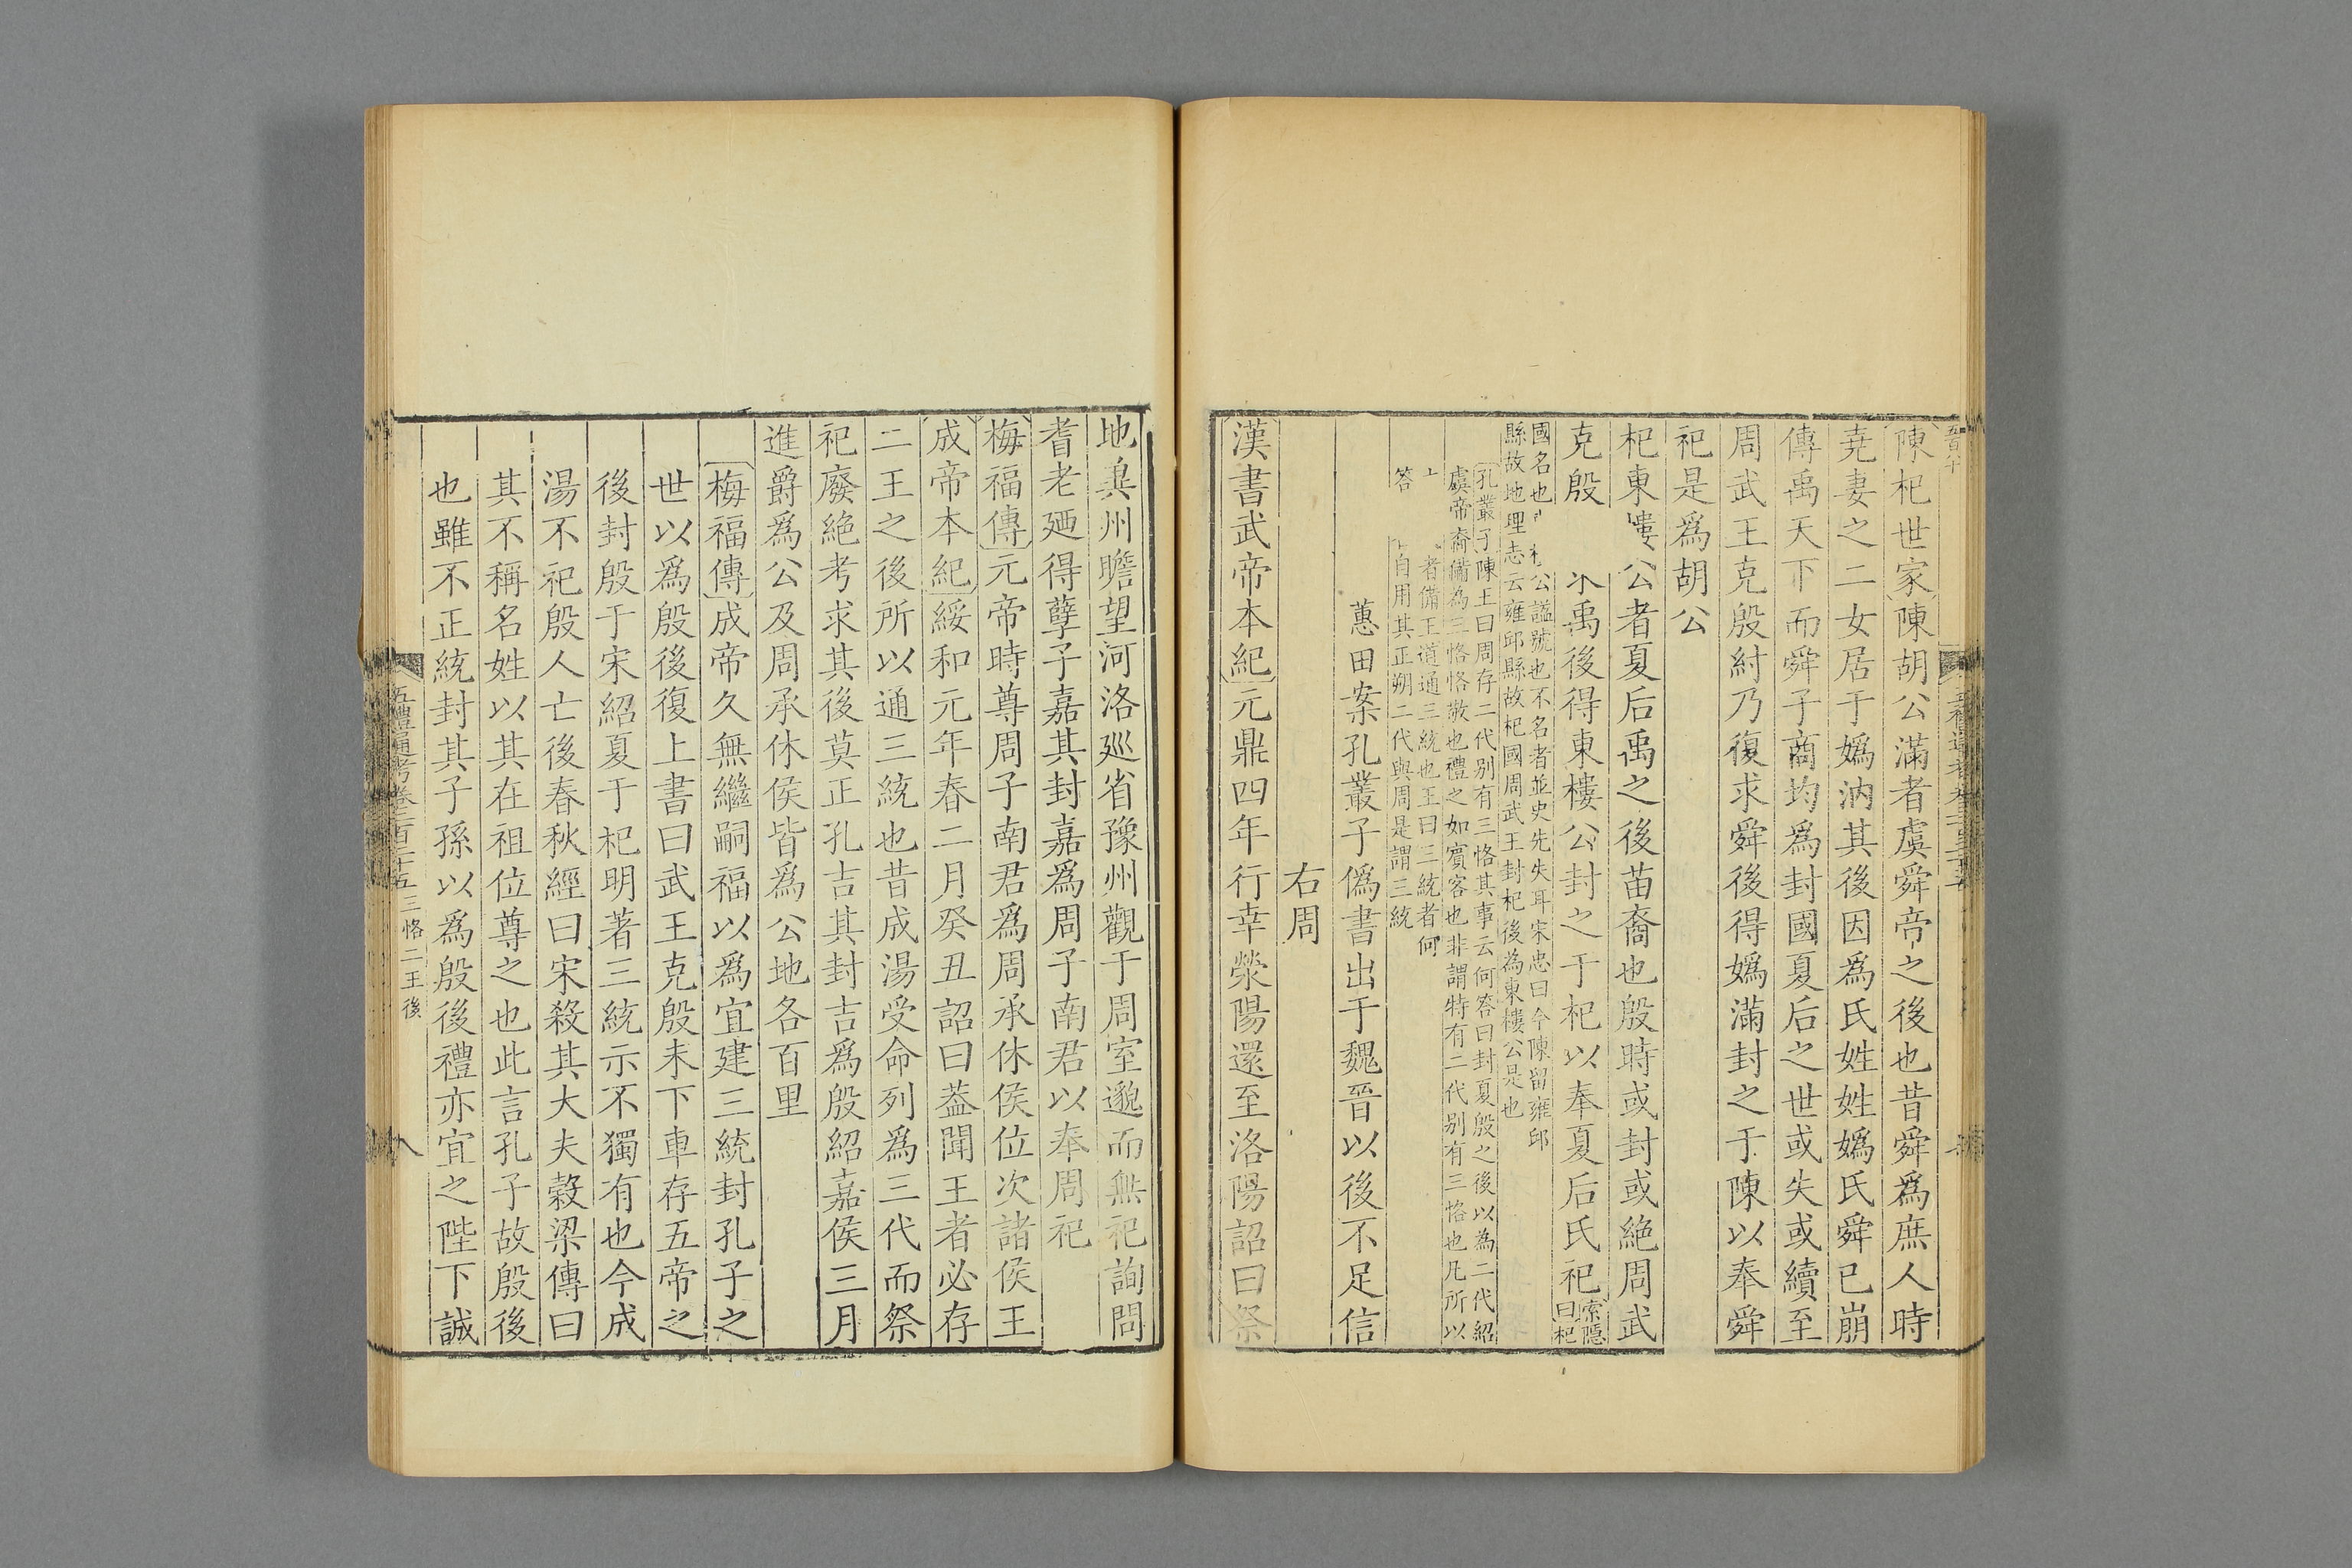 陳杞世家陳胡公滿者虞舜帝之後也昔舜爲庶人時
堯妻之二女居于嬀汭其後因爲氏姓姓嬀氏舜已崩
傳禹天下而舜子商均爲封國夏后之世或失或續至
周武王克殷紂乃復求舜後得嬀滿封之于陳以奉舜
祀是爲胡公
杞東樓公者夏后禹之後苗裔也殷時或封或絶周武
克殷 禹後得東樓公封之于杞以奉夏后氏祀索隱
曰杞
國名也 公謚號也不名者並史先失耳宋忠曰今陳留雍邱
縣故地理志云雍邱縣故杞國周武王封杞後為東樓公是也
孔叢子陳王曰周存二代别有三恪其事云何答曰封夏殷之後以為二代紹
虞帝裔備為三恪恪敬也禮之如賓客也非謂特有二代别有三恪也凡所以
者備王道通三統也王曰三統者何
答 自用其正朔二代與周是謂三統
蕙田案孔叢子僞書出于魏晉以後不足信
右周
漢書武帝本紀元鼎四年行幸滎陽還至洛陽詔曰祭
地冀州瞻望河洛巡省豫州觀于周室邈而無祀詢問
耆老廼得孽子嘉其封嘉爲周子南君以奉周祀
梅福傳元帝時尊周子南君爲周承休侯位次諸侯王
成帝本紀綏和元年春二月癸丑詔曰葢聞王者必存
二王之後所以通三統也昔成湯受命列爲三代而祭
祀廢絶考求其後莫正孔吉其封吉爲殷紹嘉侯三月
進爵爲公及周承休侯皆爲公地各百里
梅福傳成帝久無繼嗣福以爲宜建三統封孔子之
世以爲殷後復上書曰武王克殷未下車存五帝之
後封殷于宋紹夏于杞明著三統示不獨有也今成
湯不祀殷人亡後春秋經曰宋殺其大夫穀梁傳曰
其不稱名姓以其在祖位尊之也此言孔子故殷後
也雖不正統封其子孫以爲殷後禮亦宜之陛下誠
五禮通考卷二百二十五 三恪二王後 八